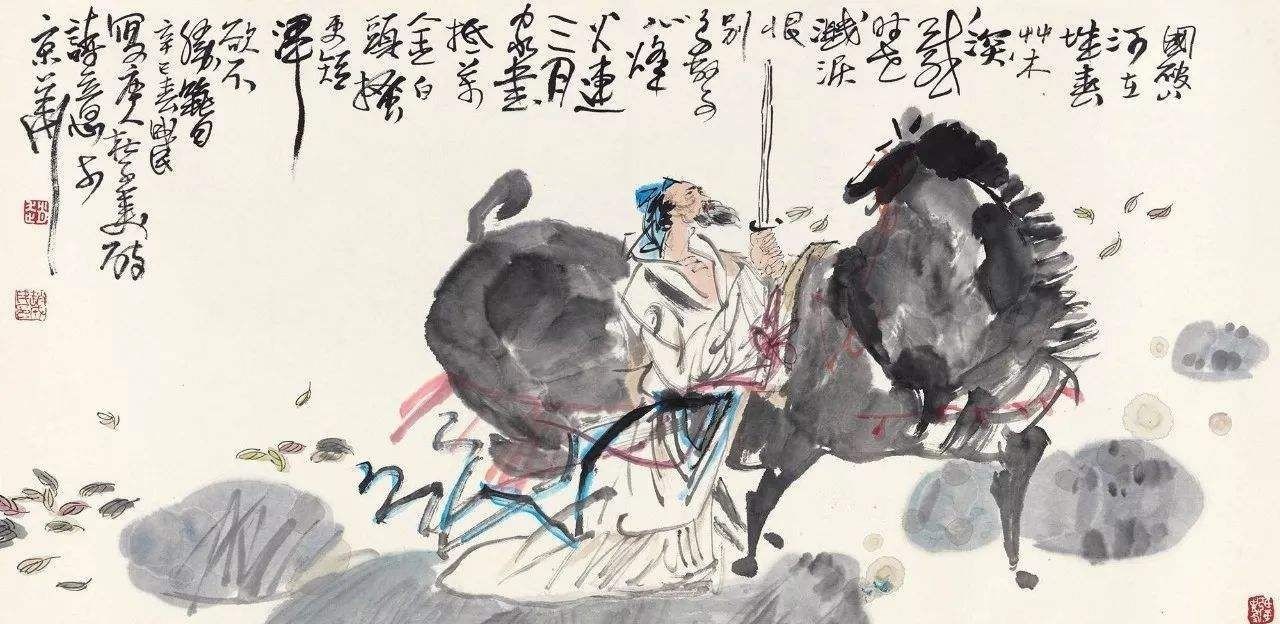 國破山
河在
城春
艸木
深
感
時花
濺淚
恨
別
鳥驚
心烽
火連
三月
家書
抵萬
金白
頭搔
更短
渾
欲不
勝簪
辛巳春
寫唐人杜子美
詩意 於
京華